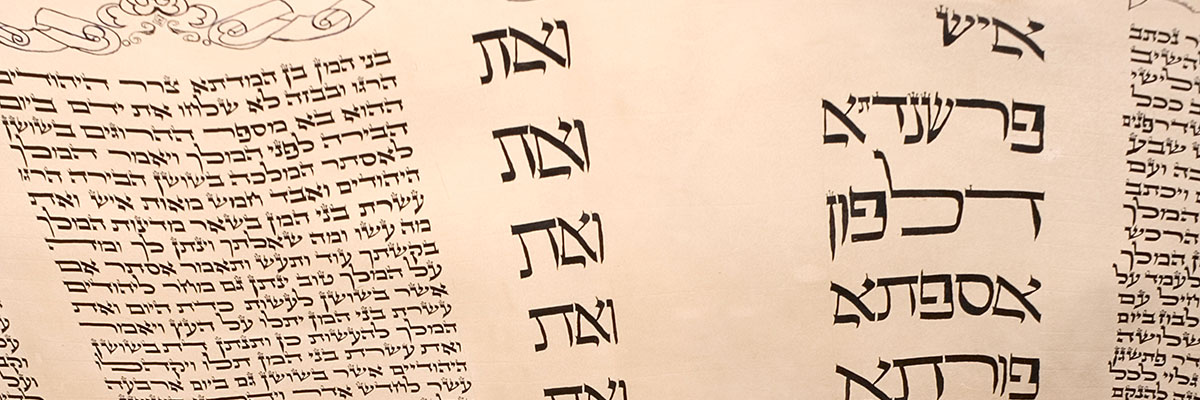 נכתב
להשיב
ככל
שבע
ועם
ויכתב
המלך
הרכש
המלך
לעמד על
עם
לבוז ביום
פתשגן
גלוי לכל
להנקם
איש ואת
פרשנדתא ואת
דלפון ואת
אספתא ואת
פורתא ואת
בני המן בן המדתא צרר היהודים
הרגו ובבזה לא שלחו את ידם ביום
ההוא בא מספר ההרוגים בשושן
הבירה לפני המלך ויאמר המלך
לאסתר המלכה בשושן הבירה הרגו
היהודים ואבד חמש מאות איש ואת
עשרת בני המן בשאר מדינות המלך
מה עשו ומה שאלתך וינתן לך ומה
בקשתך עוד ותעש ותאמר אסתר אם
על המלך טוב ינתן גם מחר ליהודים
אשר בשושן לעשות כדת היום ואת
עשרת בני המן יתלו על העץ ויאמר
המלך להעשות כן ותנתן דת בשושן
ואת עשרת בני המן תלו ויקהלו
היהודים אשר בשושן גם ביום ארבעה
עשר לחדש אדר